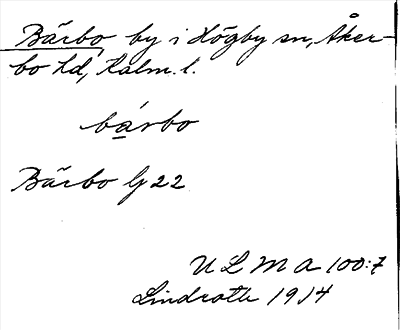 Bärbo by i Högby sn, Åker-
bo hd, Kalm. l.
bárbo
Bärbo G 22
U L M A 100:7
Lindroth 1914